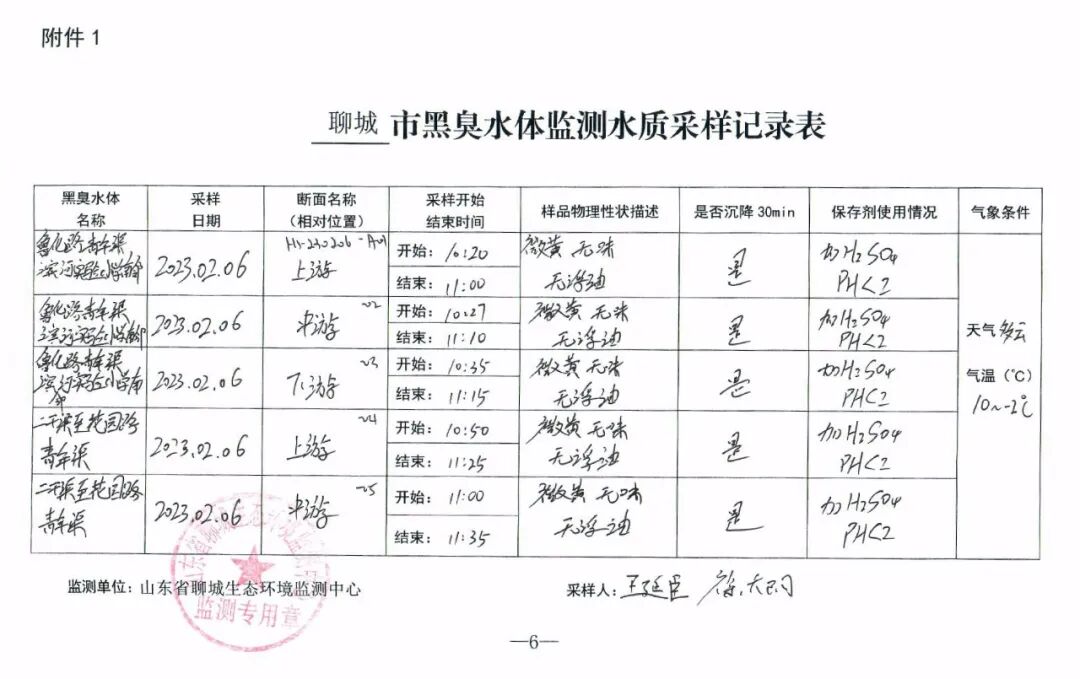 附件 1
聊城 市黑臭水体监测水质采样记录表
黑臭水体名称 采样日期 断面名称(相对位置) 采样开始结束时间 样品物理性状描述 是否沉降 30min 保存剂使用情况 气象条件
鲁化路青年渠 滨河实验小学南邻 2023.02.06 HJ-230206-A01 上游 开始: 10:20 结束: 11:00 微黄 无味 无浮油 是 加H₂SO₄ PH<2
鲁化路青年渠 滨河实验小学南邻 2023.02.06 ~02 中游 开始: 10:27 结束: 11:10 微黄 无味 无浮油 是 加H₂SO₄ PH<2
鲁化路青年渠 滨河实验小学南邻 2023.02.06 ~03 下游 开始: 10:35 结束: 11:15 微黄 无味 无浮油 是 加H₂SO₄ PH<2
二干渠至花园路 青年渠 2023.02.06 ~04 上游 开始: 10:50 结束: 11:25 微黄 无味 无浮油 是 加H₂SO₄ PH<2
二干渠至花园路 青年渠 2023.02.06 ~05 中游 开始: 11:00 结束: 11:35 微黄 无味 无浮油 是 加H₂SO₄ PH<2
天气 多云
气温(℃)
10~-2℃
监测单位: 山东省聊城生态环境监测中心 采样人: 王廷臣
山东省聊城生态环境监测中心
监测专用章
—6—